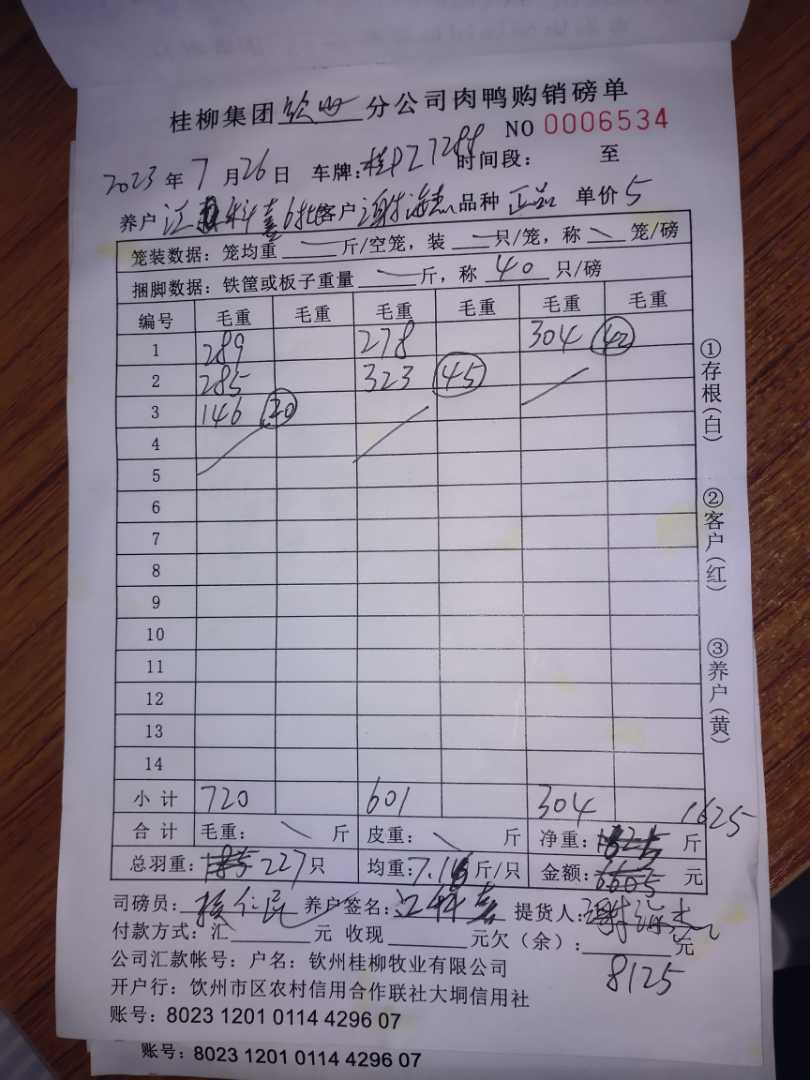 桂柳集团钦州分公司肉鸭购销磅单
NO 0006534
2023年7月26日 车牌:桂PZ7288 时间段: 至
养户江科喜6批客户谢海杰品种正品 单价5
笼装数据:笼均重 斤/空笼,装 只/笼,称 笼/磅
捆脚数据:铁筐或板子重量 斤,称 40 只/磅
编号 毛重 毛重 毛重 毛重 毛重 毛重
1 289 278 304 42
2 285 323 45
3 146 20
4
5
6
7
8
9
10
11
12
13
14
小计 720 601 304 1625
合计 毛重: 斤 皮重: 斤 净重: 斤
总羽重: 227只 均重:7.16斤/只 金额: 元
司磅员: 仁民 养户签名:江科喜 提货人:谢海杰
付款方式:汇 元 收现 元欠(余): 元
8125
公司汇款帐号:户名:钦州桂柳牧业有限公司
开户行:钦州市区农村信用合作联社大垌信用社
账号:8023 1201 0114 4296 07
账号:8023 1201 0114 4296 07
①存根(白)
②客户(红)
③养户(黄)